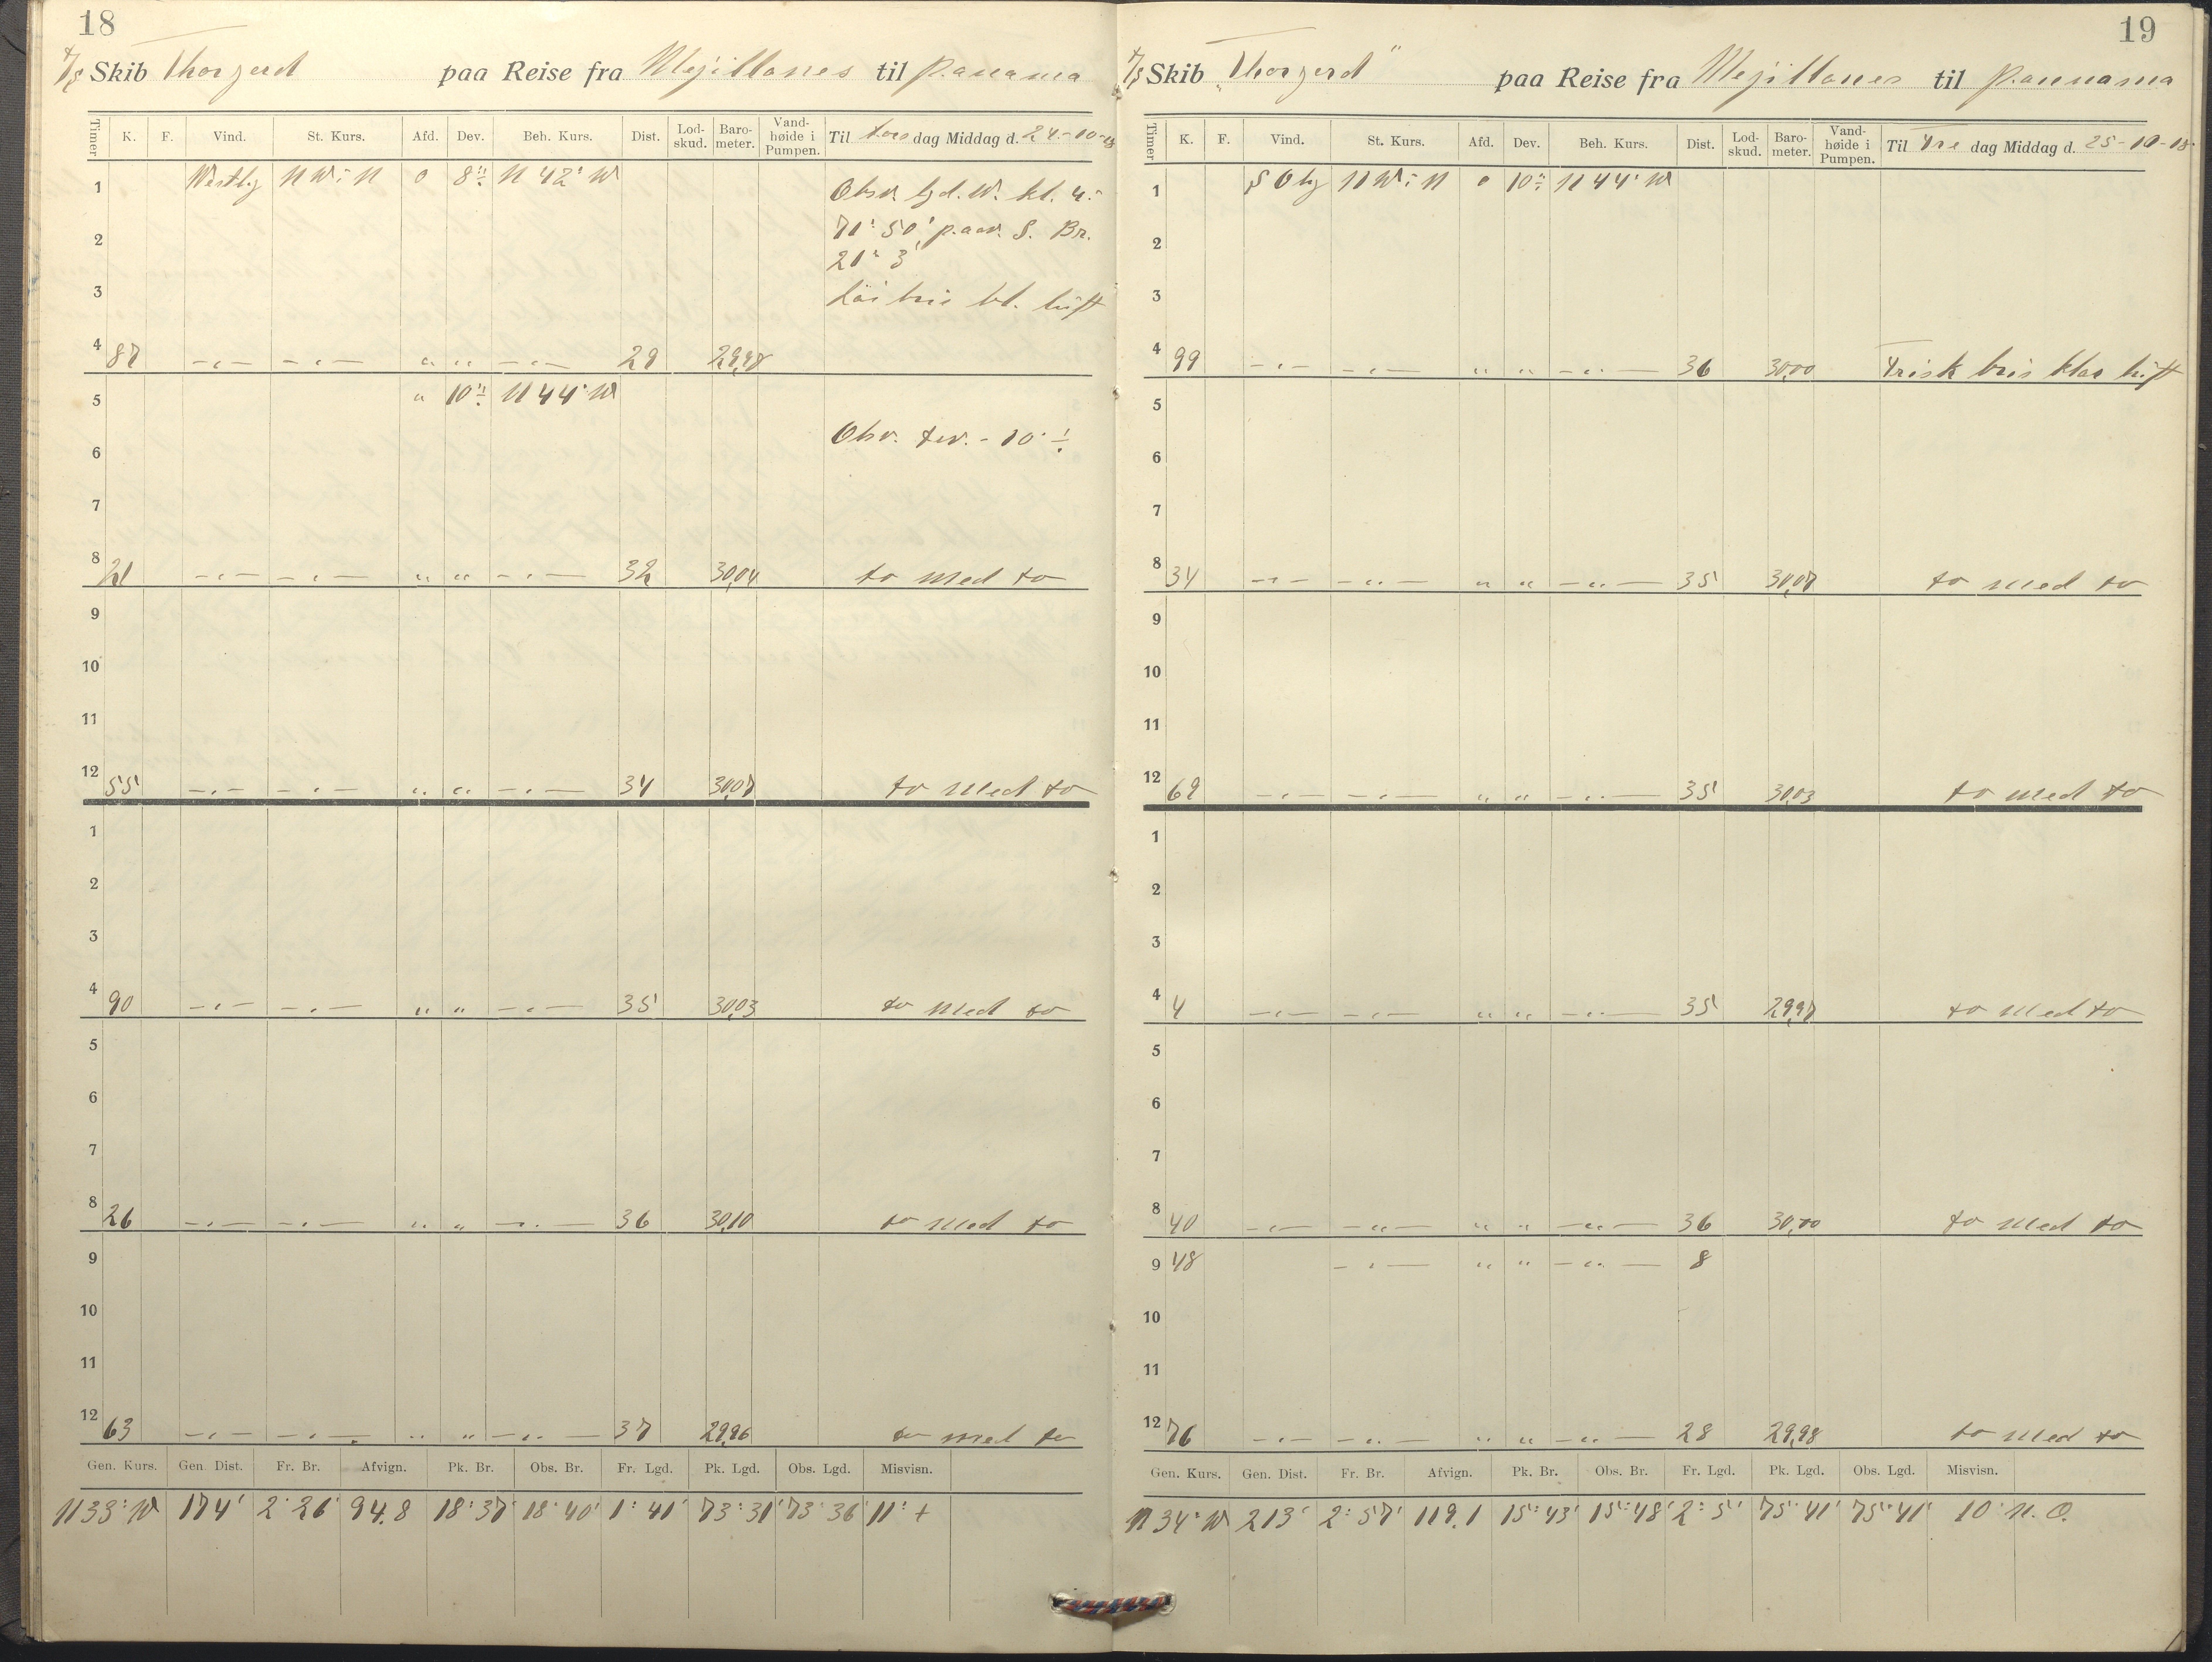 18
Skib Thorgerd paa Reise fra Mejillones til Panama
Timer K. F. Vind. St. Kurs. Afd. Dev. Beh. Kurs. Dist. Lod-skud. Baro-meter. Vand-høide i Pumpen. Til tors dag Middag d. 24-10-18
1 Westlig NWiN 0 8° ÷ N 42° W Obsv. lgd. W. kl. 4:
2 71° 50' paav. S. Br.
21° 3'
3 Löi bris kl. luft
4 87 29 29,98
5 " 10° ÷ N 44° W
6 Obsv. dev. - 10° ÷
7
8 21 " " 32 30,04 to med to
9
10
11
12 55 " " 34 30,07 to med to
1
2
3
4 90 " " 35 30,03 to med to
5
6
7
8 26 " " 36 30,10 to med to
9
10
11
12 63 " " 37 29,96 to med to
Gen. Kurs. Gen. Dist. Fr. Br. Afvign. Pk. Br. Obs. Br. Fr. Lgd. Pk. Lgd. Obs. Lgd. Misvisn.
N 33° W 174' 2° 26' 94.8 18° 37' 18° 40' 1° 41' 73° 31' 73° 36' 11° +
19
Skib "Thorgerd" paa Reise fra Mejillones til Pannama
Timer K. F. Vind. St. Kurs. Afd. Dev. Beh. Kurs. Dist. Lod-skud. Baro-meter. Vand-høide i Pumpen. Til Fre dag Middag d. 25-10-18
1 S Olig NWiN 0 10° ÷ N 44° W
2
3
4 99 " " 36 30,00 Frisk bris klar luft
5
6
7
8 34 " " 35 30,07 to med to
9
10
11
12 69 " " 35 30,03 to med to
1
2
3
4 4 " " 35 29,97 to med to
5
6
7
8 40 " " 36 30,00 to med to
9 48 " " 8
10
11
12 76 " " 28 29,98 to med to
Gen. Kurs. Gen. Dist. Fr. Br. Afvign. Pk. Br. Obs. Br. Fr. Lgd. Pk. Lgd. Obs. Lgd. Misvisn.
N 34° W 213' 2° 57' 119.1 15° 43' 15° 48' 2° 5' 75° 41' 75° 41' 10° N. O.